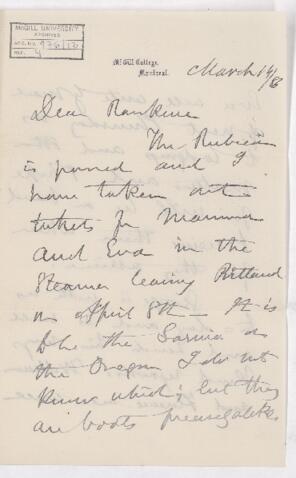 McGILL UNIVERSITY
ARCHIVES
ACC. NO. 976/12
REF. 4
McGill College.
Montreal.
March 14/86
Dear Rankine
The Rubicon
is passed and I
have taken out
tickets for Mamma
and Eva in the
Steamer leaving Portland
on April 8th. It is
to be the Sarnia or
the Oregon I do not
know which; but they
are boats precisely alike